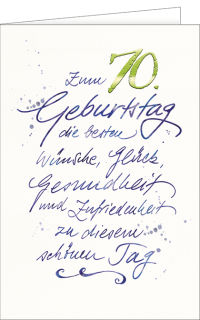 Zum 70.
Geburtstag
die besten
Wünsche, Glück,
Gesundheit
und Zufriedenheit
zu diesem
schönen Tag